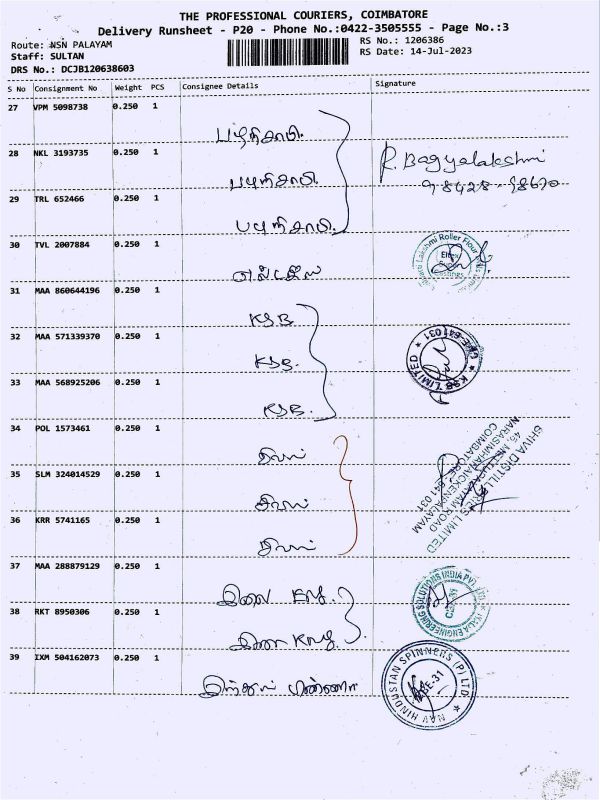 THE PROFESSIONAL COURIERS, COIMBATORE
Delivery Runsheet - P20 - Phone No.:0422-3505555 - Page No.:3
Route: NSN PALAYAM
RS No.: 1206386
Staff: SULTAN
RS Date: 14-Jul-2023
DRS No.: DCJB120638603
S No Consignment No Weight PCS Consignee Details Signature
27 VPM 5098738 0.250 1
பழனிசாமி.
28 NKL 3193735 0.250 1
பழனிசாமி.
R. Bagyalakshmi
29 TRL 652466 0.250 1
பழனிசாமி.
30 TVL 2007884 0.250 1
Lakshmi Roller Flour
31 MAA 860644196 0.250 1
KSB
32 MAA 571339370 0.250 1
KSB.
KSB LIMITED ★ CBE-641 031 ★
33 MAA 568925206 0.250 1
KSB.
34 POL 1573461 0.250 1
சிவா
SHIVA DISTILLERIES LIMITED
45, METTUPALAYAM ROAD
NARASIMHANAICKENPALAYAM
COIMBATORE - 641 031
35 SLM 324014529 0.250 1
சிவா
36 KRR 5741165 0.250 1
சிவா
37 MAA 288879129 0.250 1
ENGINEERING SOLUTIONS INDIA PVT. LTD.
38 RKT 8950306 0.250 1
39 IXM 504162073 0.250 1
NAV HINDUSTAN SPINNERS (P) LTD
CBE-31